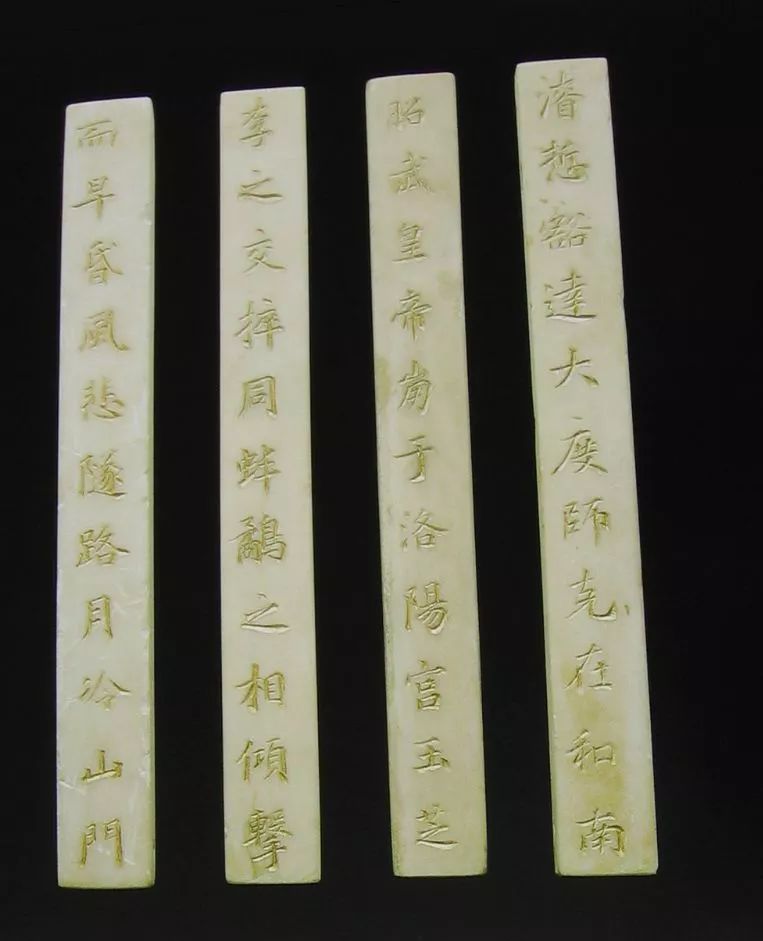 濬悊豁達大度師克在和南
昭武皇帝崩于洛陽宮玉芝
李之交捽同蚌鷸之相傾擊
而早昏風悲隧路月冷山門